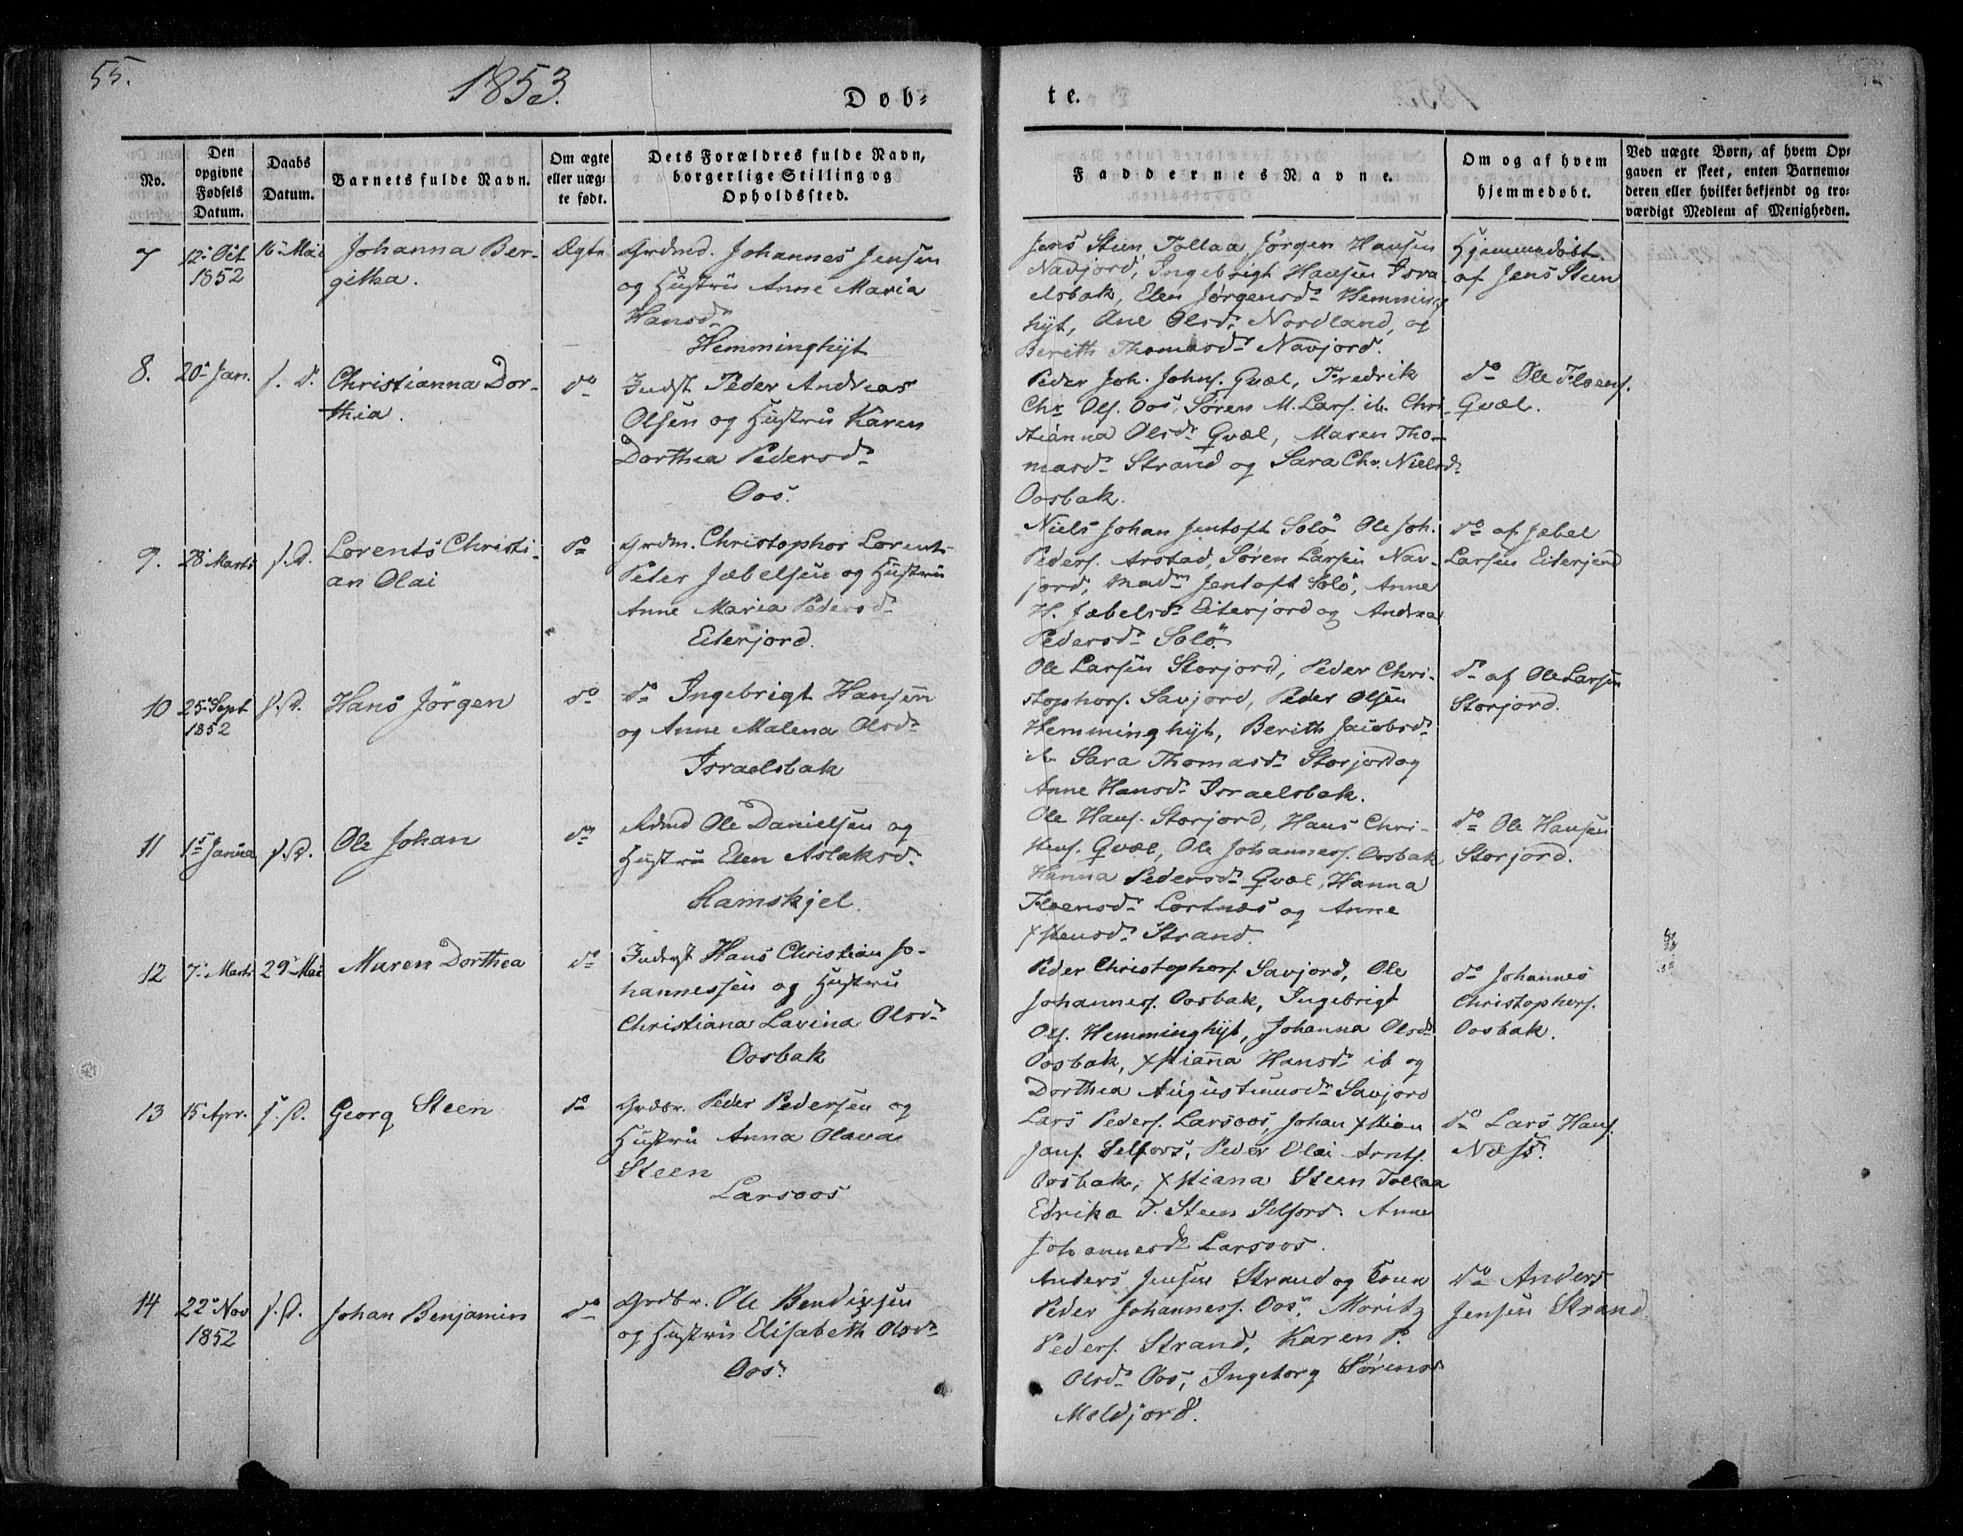 55.
1853.
Døb-
te.
No.
Den opgivne Fødsels Datum.
Daabs Datum.
Barnets fulde Navn.
Om ægte eller uægte født.
Dets Forældres fulde Navn, borgerlige Stilling og Opholdssted.
Faddernes Navne.
Om og af hvem hjemmedøbt.
Ved uægte Børn, af hvem Opgaven er skeet, enten Barnemoderen eller hvilket bekjendt og troværdigt Medlem af Menigheden.
7
12 Oct
1852
16 Mai
Johanna Ber-
githa.
Ægte
Grdmd. Johannes Jensen
og Hustru Anne Maria
Hansd.
Hemminghÿt
Jens Steen Tollaa, Jørgen Hansen
Navjord, Ingebrigt Hansen Isra
elsbak, Elen Jørgensd. Hemming
hÿt, Ane Olsd. Nordland, og
Berith Thomasd. Navjord.
Hjemmedøbt
af Jens Steen
8.
20 Jan.
s. D.
Christianna Dor-
thia.
do
Indst. Peder Andreas
Olsen og Hustru Karen
Dorthea Pedersd.
Oos.
Peder Joh. Johns. Qvæl, Fredrik
Chr. Ols. Oos, Søren M. Lars. ib. Chri
stianna Olsd. Qvæl, Maren Tho-
masd. Strand og Sara Chr. Nielsd.
Oosbak.
do Ole Floens.
Qvæl.
9.
28 Marts
s. D.
Lorents Christi-
an Olai
do
Grdm. Christophor Lorents
Peter Jæbelsen og Hustru
Anne Maria Pedersd.
Eiterjord.
Niels Johan Jentoft Solø, Ole Joh.
Peders. Arstad, Søren Larsen Nav-
jord, Mad. Jentoft Solø, Anne
H. Jæbelsd. Eiterjord og Andrea
Pedersd. Solø.
do af Jæbel
Larsen Eiterjord
10
25 Sept
1852
s. D.
Hans Jörgen
do
do Ingebrigt Hansen
og Anne Malena Olsd.
Israelsbak
Ole Larsen Storjord, Peder Chri-
stophors. Savjord, Peder Olsen
Hemminghÿt, Berith Jacobsd.
ib. Sara Thomasd. Storjord og
Anne Hansd. Israelsbak.
do af Ole Larsen
Storjord.
11
1s Janua
s. D.
Ole Johan
do
Rdmd Ole Danielsen og
Hustru Elen Aslaksd.
Ramskjel.
Ole Hans. Storjord, Hans Chri-
stens. Qvæl, Ole Johanness. Oosbak
Hanna Pedersd. Qvæl, Hanna
Floensd. Lortnæs og Anne
Xstensd. Strand.
do Ole Hansen
Storjord.
12
7 Marts
29 Mai
Maren Dorthea
do
Inderst Hans Christian Jo-
hannessen og Hustru
Christiana Lavina Olsd.
Oosbak
Peder Christophors. Savjord, Ole
Johanness. Oosbak, Ingebrigt
Ols. Hemminghÿt, Johanna Olsd.
Oosbak, Xstianna Hansd. ib og
Dorthea Augustinusd. Savjord
do Johannes
Christophers.
Oosbak.
13
15 Apr.
s. D.
Georg Steen
do
Grdbr. Peder Pedersen og
Hustru Anna Olava
Steen
Larsoos
Lars Peders. Larsoos, Johan Xstian
Jans. Selfors, Peder Olai Arnts.
Oosbak, Xstiana Steen Tollaa
Edrika T. Steen Selfors. Anne
Johannesd. Larsoos.
do Lars Hans.
Næss.
14
22 Nov
1852
s. D.
Johan Benjamin
do
Grdbr. Ole Bendixsen
og Hustru Elisabeth Olsd.
Oos.
Anders Jensen Strand og Conn
Peder Johanness. Oos, Moritz
Peders. Strand, Karen P.
Olsd. Oos, Ingeborg Sörensd
Meldjord.
do Anders
Jensen Strand